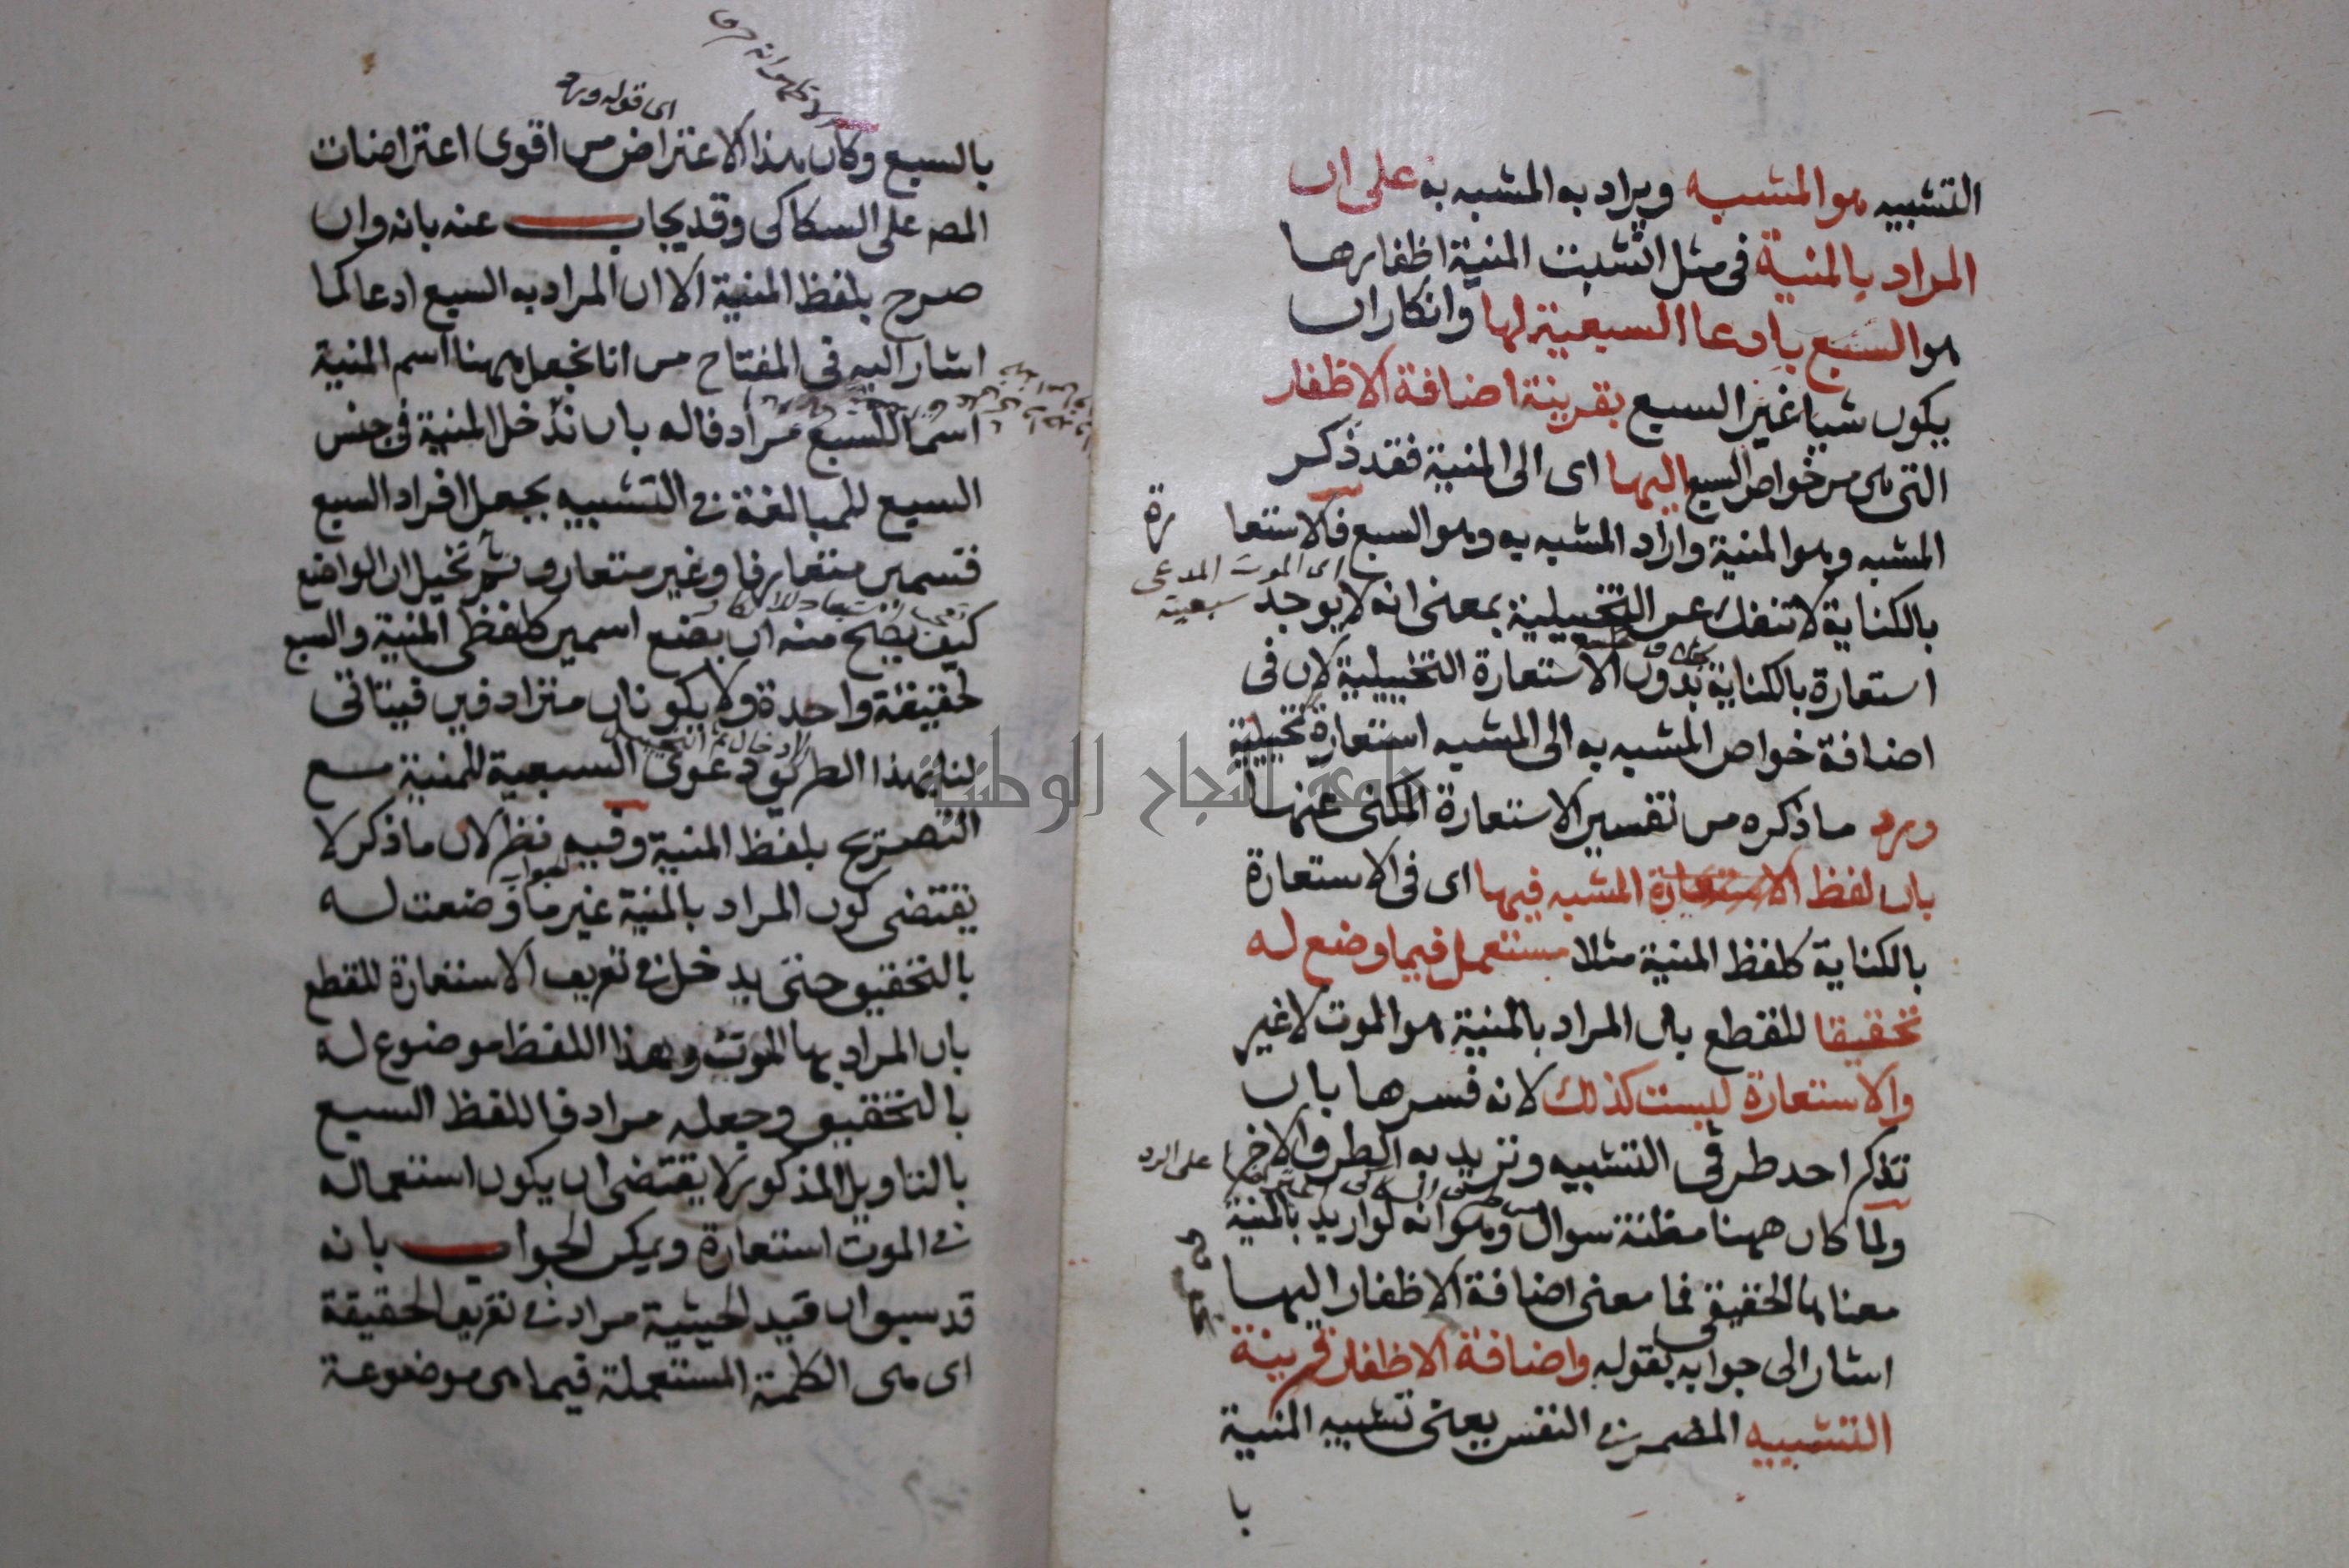 التشبيه هو المشبه ويراد به المشبه به على ان
المراد بالمنية في مثل انشبت المنية اظفارها
هو السبع بادعا السبعية لها وانكار ان
يكون شيا غير السبع بقرينة اضافة الاظفار
التي هي من خواص السبع اليها اى الى المنية فقد ذكر
المشبه وهو المنية واراد المشبه به وهو السبع فالاستعا
رة
اى الموت المدعى
سبعية
بالكناية لا تنفك عن التخييلية بمعنى انه لا يوجد
استعارة بالكناية بدون الاستعارة التخييلية لان فى
اضافة خواص المشبه به الى المشبه استعارة تخييلية
ورد ما ذكره من تفسير الاستعارة المكنى عنها
بان لفظ الاستعارة المشبه فيها اى فى الاستعارة
بالكناية كلفظ المنية مثلا مستعمل فيما وضع له
تحقيقا للقطع بان المراد بالمنية هو الموت لا غير
والاستعارة ليست كذلك لانه فسرها بان
تذكر احد طرفى التشبيه وتريد به الطرف الاخر
على الرد
ولما كان ههنا مظنة سوال وهو انه لو اريد بالمنية
معناها الحقيقى فما معنى اضافة الاظفار اليها
اشار الى جوابه بقوله واضافة الاظفار قرينة
التشبيه المضمر فى النفس يعنى تشبيه المنية
با
اى قوله ورد
بالسبع وكان هذا الاعتراض من اقوى اعتراضات
المص على السكاكى وقد يجاب عنه بانه وان
صرح بلفظ المنية الا ان المراد به السبع ادعا كما
اشار اليه فى المفتاح من انا نجعل ههنا اسم المنية
اسما للسبع مرادفا له بان ندخل المنية فى جنس
السبع للمبالغة فى التشبيه بجعل افراد السبع
قسمين متعارفا وغير متعارف ثم تخيل ان الواضع
كيف يصح منه ان يضع اسمين كلفظى المنية والسبع
لحقيقة واحدة ولا يكونان مترادفين فيتاتى
لنا بهذا الطريق دعوى السبعية للمنية مع
التصريح بلفظ المنية وفيه نظر لان ما ذكر لا
يقتضى كون المراد بالمنية غير ما وضعت له
بالتحقيق حتى يدخل فى تعريف الاستعارة للقطع
بان المراد بها الموت وهذا اللفظ موضوع له
بالتحقيق وجعله مرادفا للفظ السبع
بالتاويل المذكور لا يقتضى ان يكون استعماله
فى الموت استعارة ويمكن الجواب بانه
قد سبق ان قيد الحيثية مراد فى تعريف الحقيقة
اى هى الكلمة المستعملة فيما هى موضوعة
جامعة النجاح الوطنية